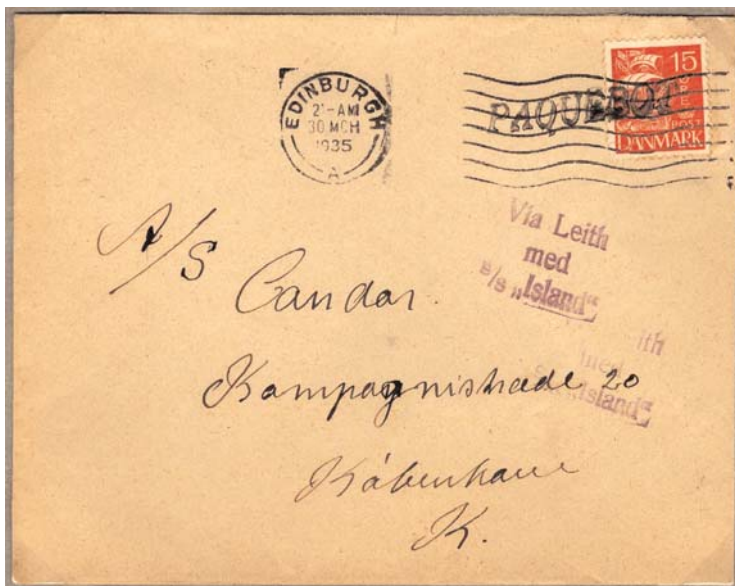 EDINBURGH
2-AM
30 MCH
1935
A
PAQUEBOT
15
ØRE
POST
DANMARK
Via Leith
med
s/s „Island“
ith
med
Island“
A/S
Candor.
Kompagnistræde 20
København
K.